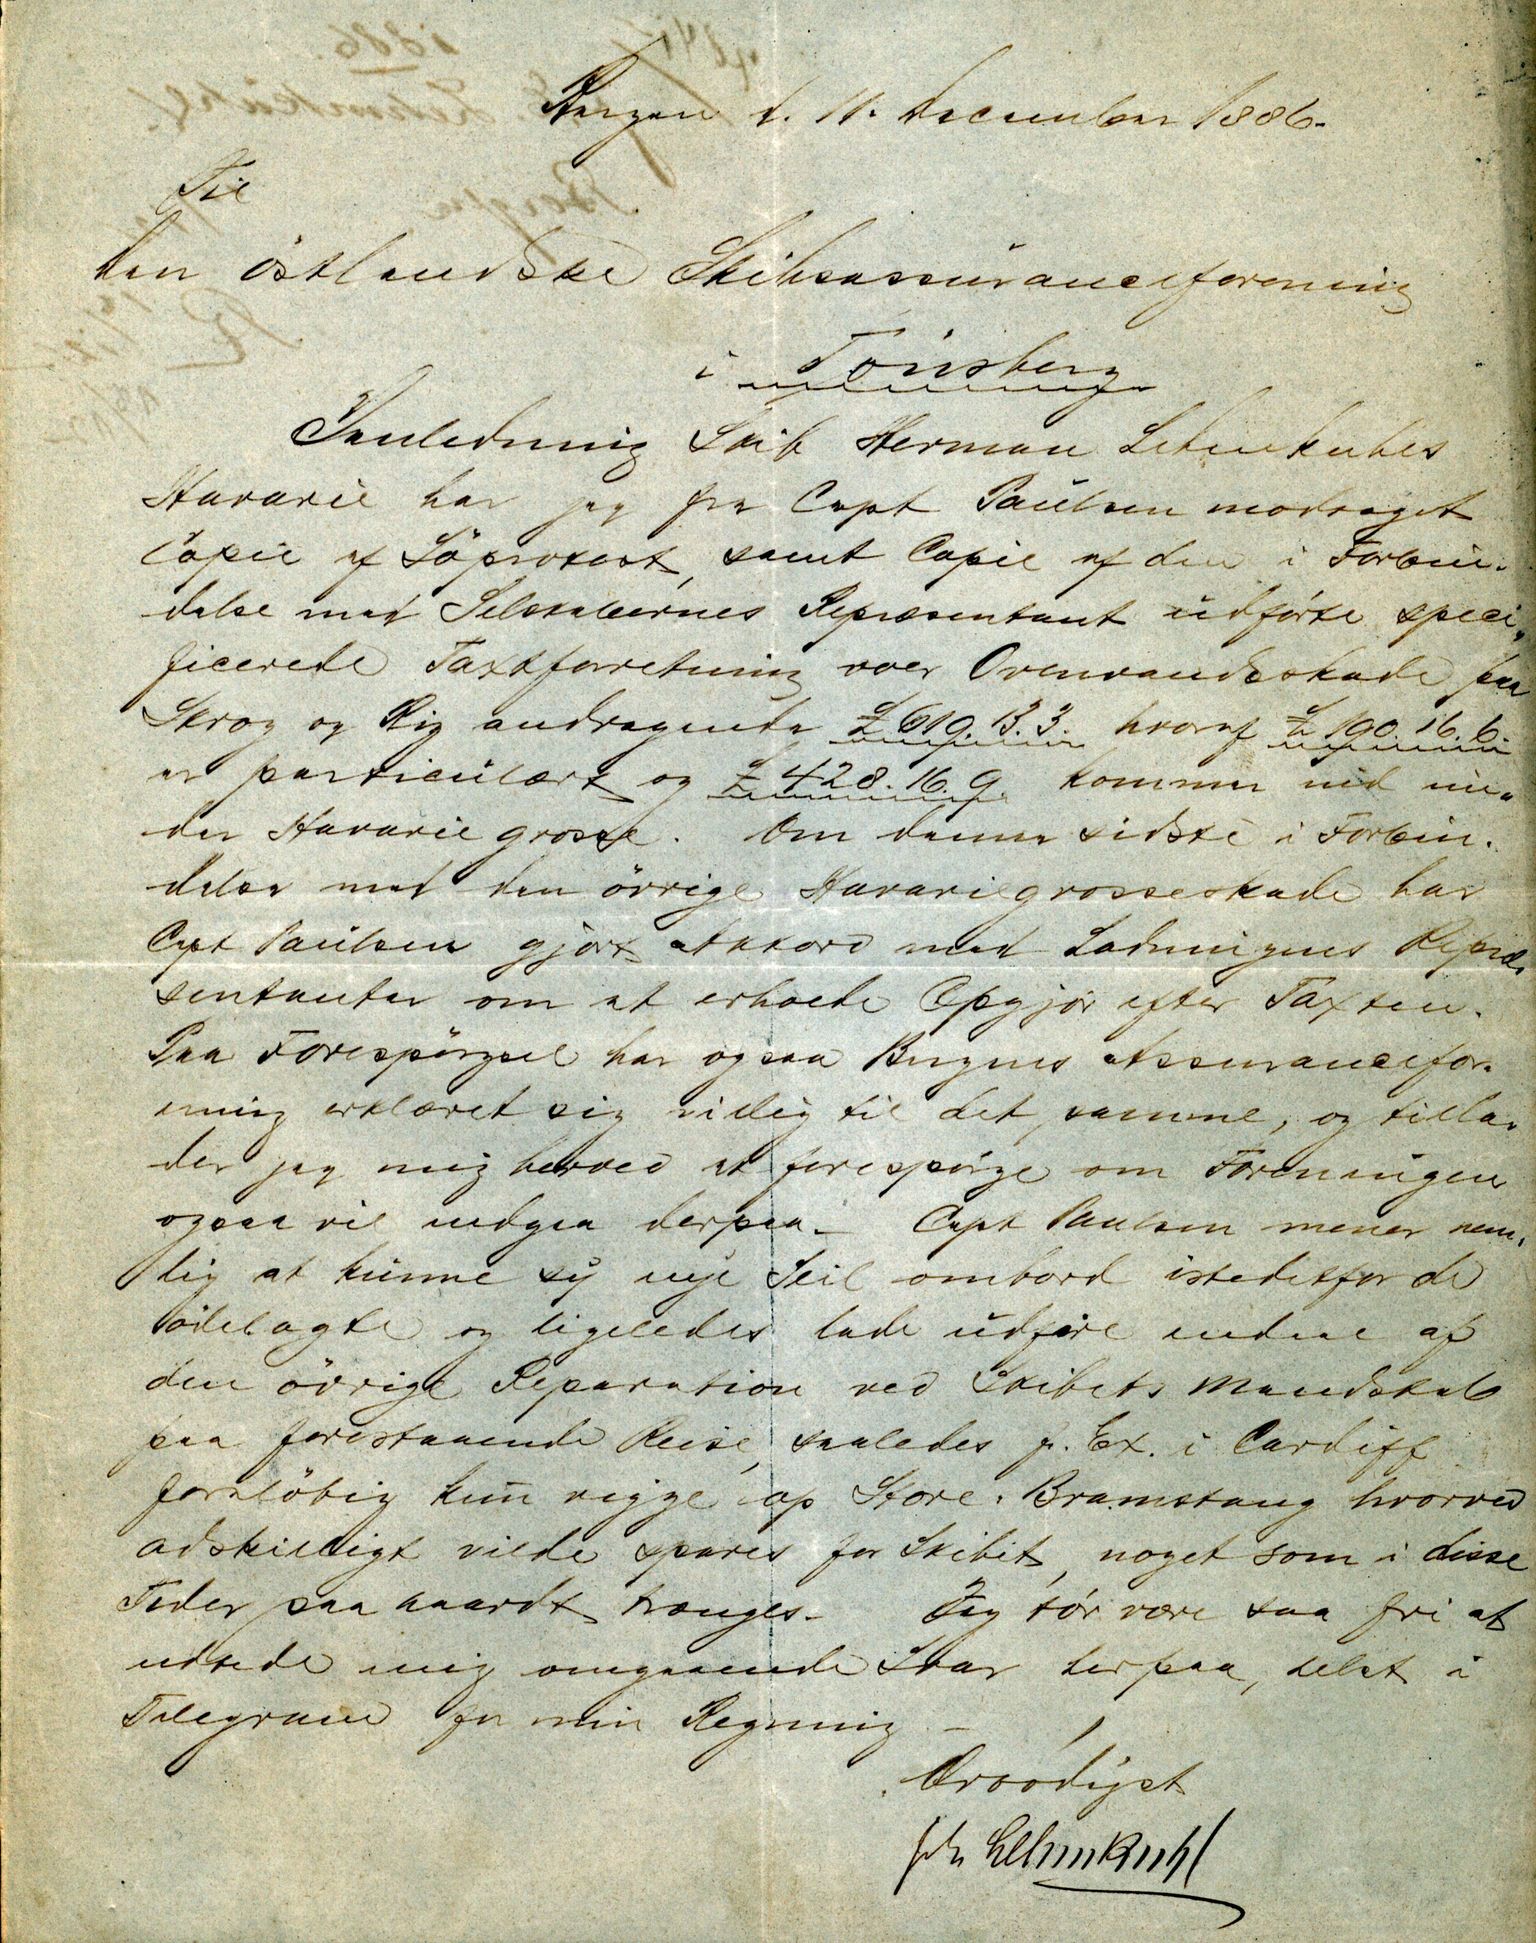 Bergen d. 11. December 1886.
Til
Den östlandske Skibsassuranceforening
i Tönsberg
I Anledning Skib Herman Lehmkuhls
Havarie har jeg fra Capt Paulsen modtaget
Copie af Söprotest, samt Copie af den i Forbin-
delse med Selskabernes Repræsentant udförte speci-
ficerede Taxtforretning over Ovenvandsskade paa
Skrog og Rig andragende £ 619. 13. 3. hvoraf £ 190. 16. 6.
er particulært og £ 428. 16. 9. kommer ind un-
der Havarie grosse. Om denne sidste i Forbin-
delse med den övrige Havariegrosseskade har
Capt Paulsen gjort Akkord med Ladningens Repræ-
sentanter om at erholde Opgjör efter Taxten.
Paa Forespörgsel har ogsaa Bergens Assurancefor-
ening erklæret sig villig til det samme, og tilla-
der jeg mig herved at forespörge om Foreningen
ogsaa vil indgaa derpaa. Capt Paulsen mener nem-
lig at kunne sy nye Seil ombord istedetfor de
ödelagte og ligeledes lade udföre endeel af
den övrige Reparation ved Skibets Mandskab
paa forestaaende Reise, saaledes f. Ex. i Cardiff
foreløbig kun rigge op Store-Bramstang hvorved
adskilligt vilde spares for Skibet, noget som i disse
Tider saa haardt trænges. Jeg tör være saa fri at
udbede mig omgaaende Svar herpaa, helst i
Telegram for min Regning.
Ærbödigst
Joh Lehmkuhl